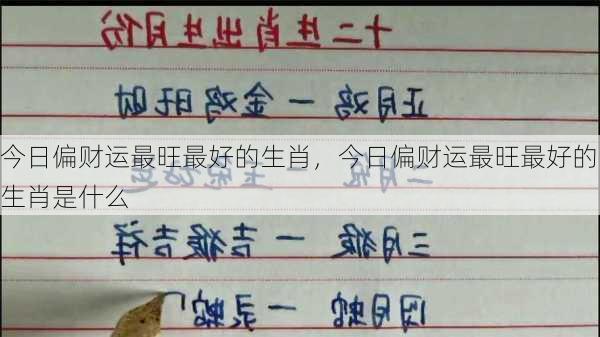 十二生肖出生月份
正月鸡一金鸡旺财
今日偏财运最旺最好的生肖，今日偏财运最旺最好的
生肖是什么
三月猴一吉猴吉祥
四月蛇一灵蛇